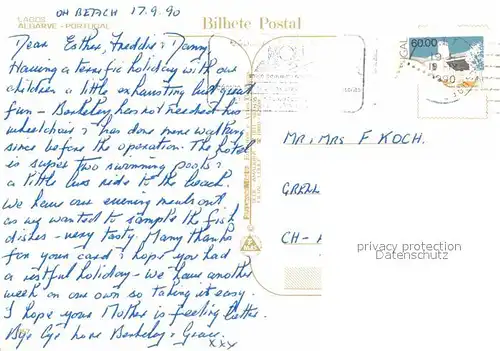 ON BEACH 17.9.90
LAGOS
ALGARVE - PORTUGAL
Bilhete Postal
Dear Esther, Freddie & Danny,
Having a terrific holiday with our
children a little exhausting but great
fun - Berkeley has not needed his
wheelchair & has done more walking
since before the operation. The hotel
is super two swimming pools &
a little bus ride to the beach.
We have our evening meals out
as we wanted to sample the fish
dishes - very tasty. Many thanks
for your card & hope you had
a restful holiday - we have another
week on our own so taking it easy.
I hope your Mother is feeling better.
Bye Bye Love Berkeley & Grace.
xxx
60.00
MR, MRS F KOCH.
CH -
privacy protection
Datenschutz